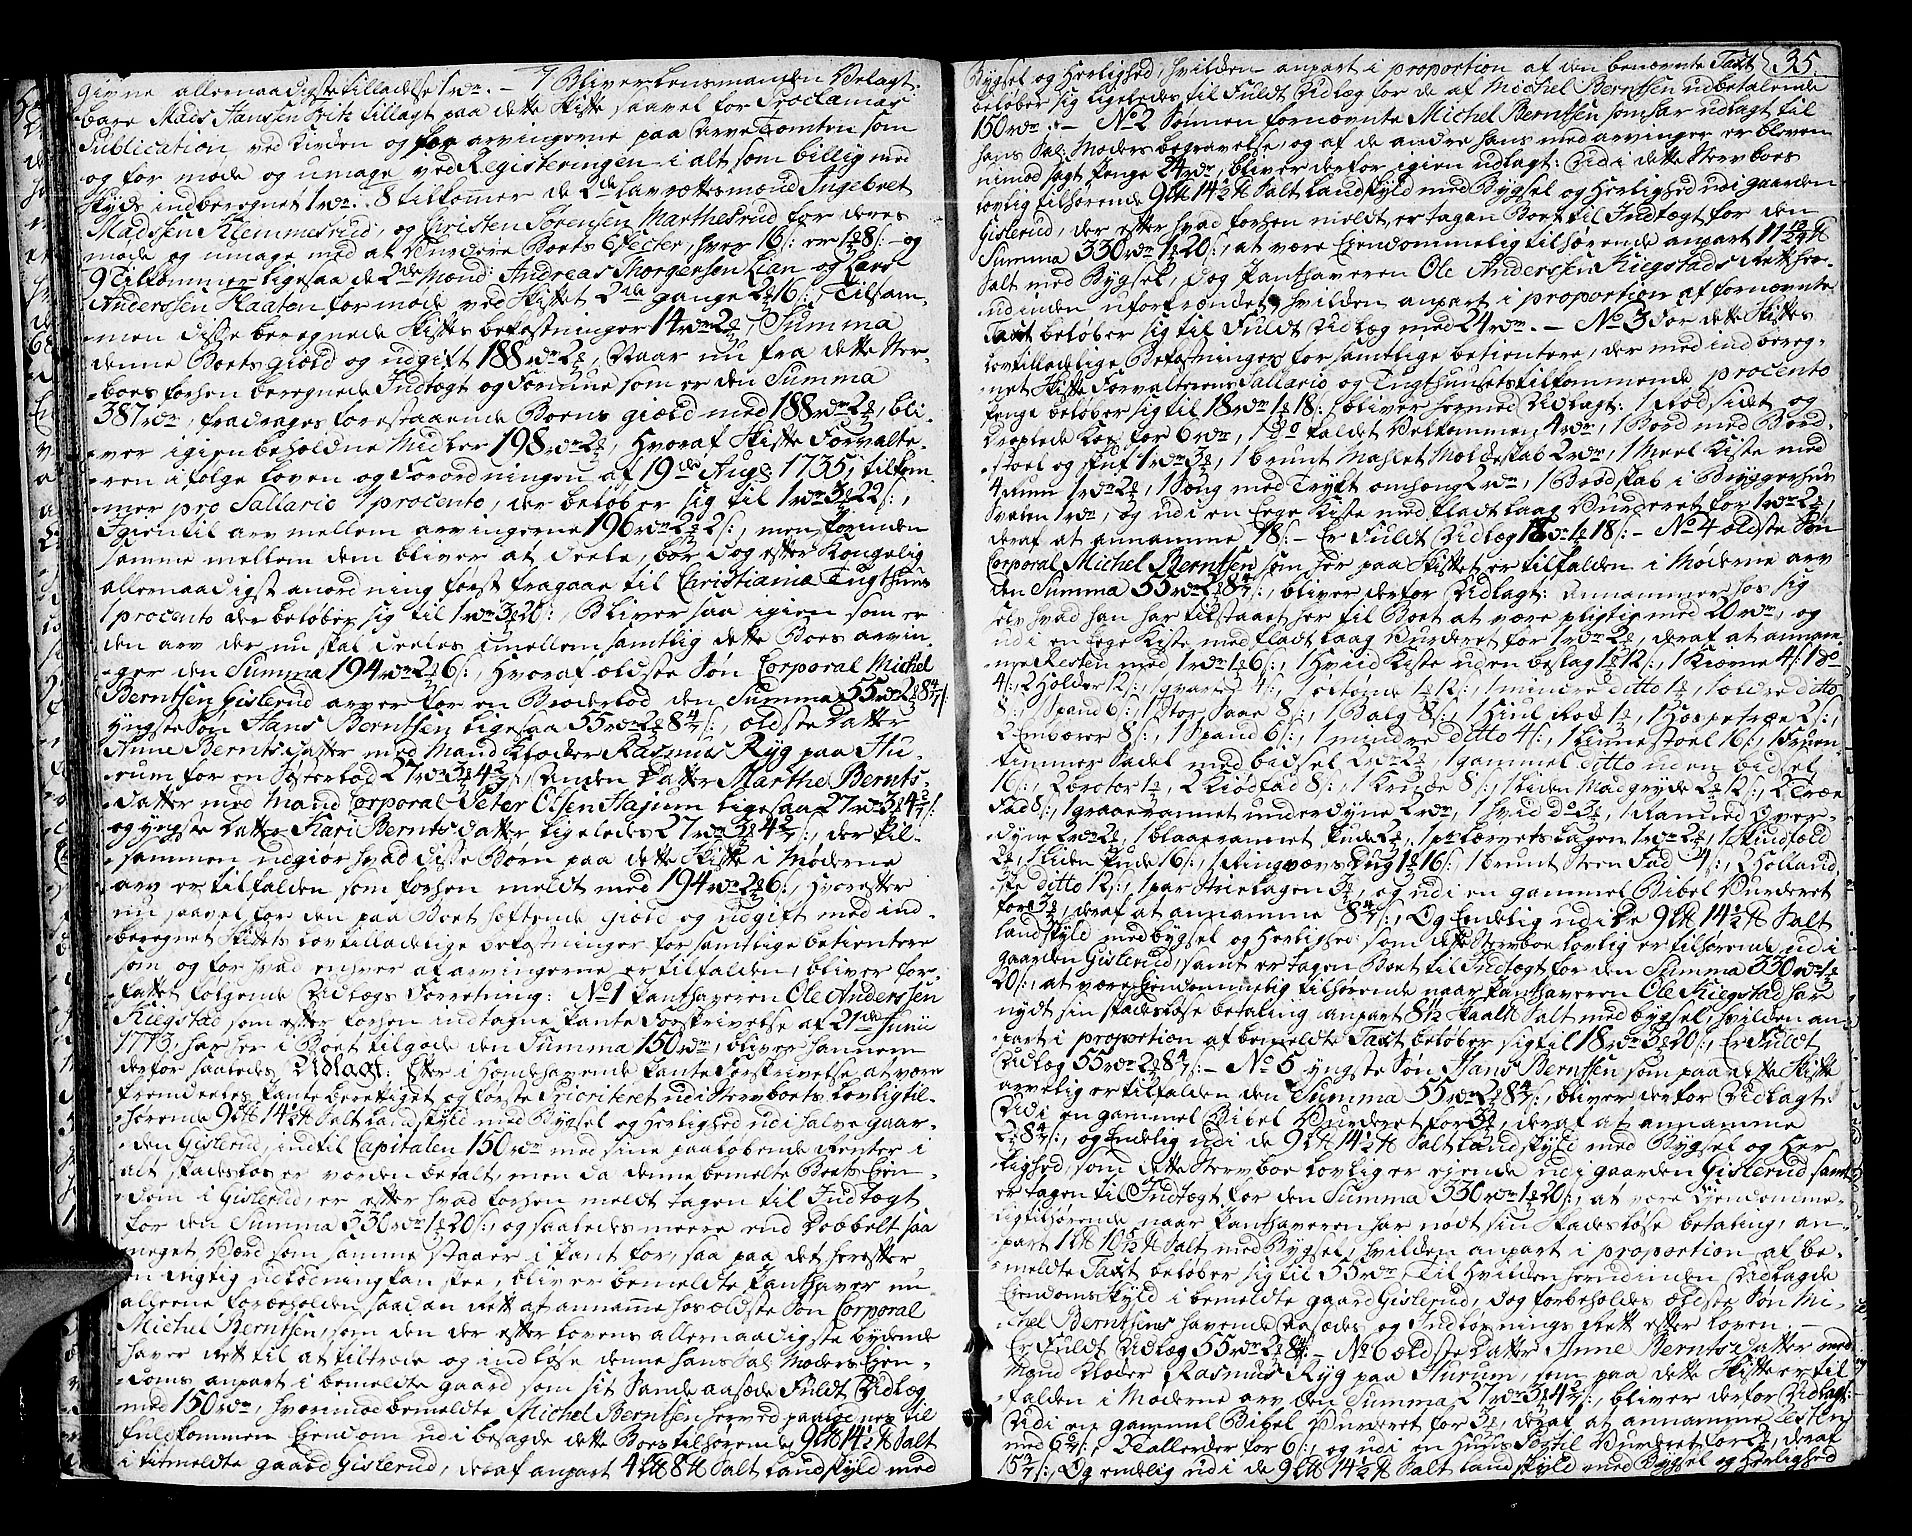 givne allernaadigste tilladelse 1 rdr. - 7 Bliver Lensmanden Velagt-
bare Mads Hansen Fritz tillagt paa dette Skifte saavel for Proclamas
Publication ved Kirken og for arvingerne paa Arve Tomten som
og for møde og umage ved Registeringen i alt som billig med
skyds indberegnet 1 rdr. 8 tilkommer de 2de Lavrettesmænd Ingebret
Madsen Klemmetsrud, og Christen Sørensen Marthesrud for deres
møde og umage med at Vurdere Boets Effecter, hver 16 s: er 1 8 s: og
9 Tilkommer ligesaa de 2de Mænd: Andreas Thorgersen Lian og Lars
Anderssen Haaten for møde ved Skiftet 2de gange 2 16 s:, Tilsam-
men disse beregnede Skiftes bekostninger 14 rdr 2, Summa
denne Boets giæld og udgift 188 rdr 2, Naar nu fra dette Ster-
boes forhen beregnede Indtægt og Formue som er den Summa
387 rdr, fradrages forestaaende Boens giæld med 188 rdr 2, bli-
ver igien beholdne Midler 198 rdr 2, Hvoraf Skifte Forvalte-
ren i følge Loven og Forordningen af 19de Aug: 1735, tilkom-
mer pro Sallario 1 procento, der beløber sig til 1 rdr 3 22 s:,
Igien til arv mellem arvingerne 196 rdr 2 2 s:, men forinden
samme mellem dem bliver at deele, bør dog efter Kongelig
allernaadigst anordning først fragaae til Christiania Tugthuus
1 procento der beløber sig til 1 rdr 3 20 s:, Bliver saa igien som er
den arv der nu skal deeles imellem samtlig dette Boes arvin-
ger den Summa 194 rdr 2 6 s:, Hvoraf ældste Søn Corporal Michel
Berntsen Gislerud arver for en Broderlod den Summa 55 rdr 2 8 4/7 s:
yngste Søn Hans Berntsen ligesaa 55 rdr 2 8 4/7 s:, ældste Datter
Anne Bernts datter med Mand Kloder Rasmus Ryg paa Hu-
rum for en Søsterlod 27 rdr 3 4 2/7 s:, anden Datter Marthe Bernts-
datter med Mand Corporal Peter Olsen Hajum ligesaa 27 rdr 3 4 2/7 s:
og yngste Datter Kari Bernts datter ligeledes 27 rdr 3 4 2/7 s:, der til-
sammen udgiør hvad disse Børn paa dette Skifte i Møderne
arv er tilfalden som forhen meldt med 194 rdr 2 6 s:, Hvorefter
nu saavel for den paa Boet heftende Giæld og udgift med ind-
beregnet Skiftets lovtilladelige bekostninger for samtlige betientere
som og for hvad enhver af arvingerne er tilfalden, bliver for-
fattet følgende Udlægs Forretning: No 1 Panthaveren Ole Anderssen
Kiegstad som efter forhen indtagne Pante Forskrivelse af 21de Junii
1773, har her i Boet tilgode den Summa 150 rdr, bliver hannem
derfor saaledes Udlagt: Efter i Hændehavende Pante Forskrivelse at være
fremdeeles Pante berettiget og første Prioriteret udi Stervboets lovlig til-
hørende 9 L 14 1/2 Salt Landskyld med Bygsel og Herlighed udi halve gaar-
den Gislerud, indtil Capitalen 150 rdr med sine paaløbende Renter i
alt skadesløs er vorden betalt, men da denne bemelte Boets Eien-
dom i Gislerud, er efter hvad forhen meldt tagen til Indtægt
for den Summa 330 rdr 1 20 s:, og saaledes meere end Dobbelt saa
meget Værd som samme staaer i Pant for, saa paa det herefter
en rigtig udlodning kan skee, bliver bemeldte Panthaver nu
allerne forbeholden saadan Rett at annamme hos ældste Søn Corporal
Michel Berntsen, som den der efter Lovens allernaadigste bydende
haver Rett til at tiltræde og indløse denne hans Sal: Moders Eien-
doms anpart i bemeldte gaard som sit Sande aasæde Fuldt Udlæg
med 150 rdr, hvorimod bemeldte Michel Berntsen herved paalægnes til
fuldkommen Eiendom udi besagde dette Boes tilhørende 9 L 14 1/2 Salt
i titmeldte gaard Gislerud, deraf anpart 4 L 8 Salt Landskyld med
35.
Bygsel og Herlighed, hvilden anpart i proportion af den benevnte Taxt
beløber sig ligeledes til Fuldt Udlæg for de af Michel Berntsen udbetalende
150 rdr. - No 2 Sønnen fornævnte Michel Berntsen som har udlagt til
hans Sal: Moders begravelse, og af de andre hans medarvinger er bleven
nimod sagt Penge 24 rdr, bliver derfor igien udlagt: Udi dette Stervboes
lovlig tilhørende 9 L 14 1/2 Salt Landskyld med Bygsel og Herlighed udi gaarden
Gislerud, der efter hvad forhen meldt er tagen Boet til Indtægt for den
Summa 330 rdr 1 20 s:, at være Eiendommelig tilhørende anpart 11 19/24
Salt med Bygsel, dog Panthaveren Ole Anderssen Kiegstads Rett her-
udinden uforkrændet, hvilden anpart i proportion af fornævnte
Taxt beløber sig til Fuldt Udlæg med 24 rdr. - No 3 For dette Skiftes
lovtilladelige Bekostninger for samtlige betientere, der med indbereg-
net Skifte Forvalterens Sallario og Tugthuusets tilkommende procento
Penge beløber sig til 18 rdr 1 18 s: bliver hermed Udlagt: 1 Rødsidet og
Droplede Koe for 6 rdr, 1 do kaldet Velkommen 4 rdr, 1 Bord med Bord-
stoel og Puf 1 rdr 3, 1 brunt Mahlet Moldeskab 2 rdr, 1 Meel Kiste med
4 Rum 1 rdr 2, 1 Seng med Tryt omhæng 2 rdr, 1 Brødskab i Bryggerhus
Svalen 1 rdr, og udi en Eege Kiste med fladt Laag Vurderet for 1 rdr 2,
deraf at annamme 18 s: - Er Fuldt Udlæg 18 rdr 1 18 s: - No 4 ældste Søn
Corporal Michel Berntsen som her paa Skiftet er tilfalden i Møderne arv
den Summa 55 rdr 2 8 4/7 s:, bliver derfor Udlagt: Annammer hos sig
selv hvad han har tilstaaet her til Boet at være pligtig med 20 rdr, og
udi en Eege Kiste med fladt Laag Vurderet for 1 rdr 2, deraf at annam-
me Resten med 1 rdr 1 6 s:, 1 Hviid Kiste uden beslag 1 12 s:, 1 Kiærne 4 s: 1 do
4 s:, 2 Holder 12 s:, 1 qvarter 4 s:, 1 øltønde 1 12 s:, 1 mindre ditto 1, 1 ældre ditto
8 s:, 1 Spand 6 s:, 1 Stor Saae 8 s:, 1 Balg 8 s:, 1 Hiul Rok 1, 1 Horpetræe 2 s:,
2 Embærer 8 s:, 1 Spand 6 s:, 1 mindre ditto 4 s:, 1 Linne stoel 16 s:, 1 Fruen-
timmer Sadel med bidsel 2 rdr 2, 1 gammel ditto uden bidsel
16 s:, 2 brotor 1, 2 Kiødfad 8 s:, 1 Krukke 8 s:, 1 Liden Madgryde 2 12 s:, 2 Træe
Fad 8 s:, 1 graaerannet underdyne 2 rdr, 1 Hvid do 3, 1 Ranned Over-
dyne 2 rdr 2, 1 blaaerannet Pude 2, 1 pr Lærrets Lagen 1 rdr 2, 1 Skindfæld
2, 1 liden Pude 16 s:, 1 Ringvævs Dug 1 16 s:, 1 brunt Steen Fad 4 s:, 2 Holland-
ske ditto 12 s:, 1 par Strielagen 3, og udi en gammel Bibel Vurderet
for 3, deraf at annamme 8 4/7 s:, Og Endelig udi de 9 L 14 1/2 Salt
Landskyld med bygsel og Herlighed som dette Stervboe lovlig er tilhørende udi
gaarden Gislerud, samt er tagen Boet til Indtægt for den Summa 330 rdr 1
20 s:, at være Eiendommelig tilhørende naar Panthaveren Ole Kiegstad har
nydt sin skadesløse betaling anpart 8 1/2 Skaall Salt med bygsel, hvilden an-
part i proportion af bemeldte Taxt beløber sig til 18 rdr 3 20 s:, Er Fuldt
Udlæg 55 rdr 2 8 4/7 s: - No 5 yngste Søn Hans Berntsen som paa dette Skifte
arvelig er tilfalden den Summa 55 rdr 2 8 4/7 s:, bliver derfor Udlagt:
Udi en gammel Bibel Vurderet for 3, deraf at annamme
2 8 4/7 s:, og Endelig udi de 9 L 14 1/2 Salt Landskyld med Bygsel og Her-
lighed, som dette Stervboe lovlig er ejende udi gaarden Gislerud samt
er tagen til Indtægt for den Summa 330 rdr 1 20 s:, at være Eiendomme-
lig tilhørende naar Panthaveren har nødt sin Skadesløse betaling, an-
part 1 L 10 1/2 Salt med Bygsel, hvilden anpart i proportion af be-
meldte Taxt beløber sig til 55 rdr, Til Hvilden herudinden Udlagde
Eiendoms skyld i bemeldte gaard Gislerud, dog forbeholdes ældste Søn Mi-
chel Berntsens havende Aasædes og Indløsnings Rett efter Loven. -
Er Fuldt Udlæg 55 rdr 2 8 4/7 s: - No 6 ældste Datter Anne Bernts datter med
Mand Kloder Rasmus Ryg paa Hurum, som paa dette Skifte er til-
falden i Møderne arv den Summa 27 rdr 3 4 2/7 s:, bliver derfor Udlagt:
Udi en gammel Bibel Vurderet for 3, deraf at annamme Resten
med 6 s:, Klallerder for 6 s:, og udi en Huus Postil Vurderet for 2, deraf
15 2/7 s:, Og endelig udi de 9 L 14 1/2 Salt Landskyld med Bygsel og Herlighed